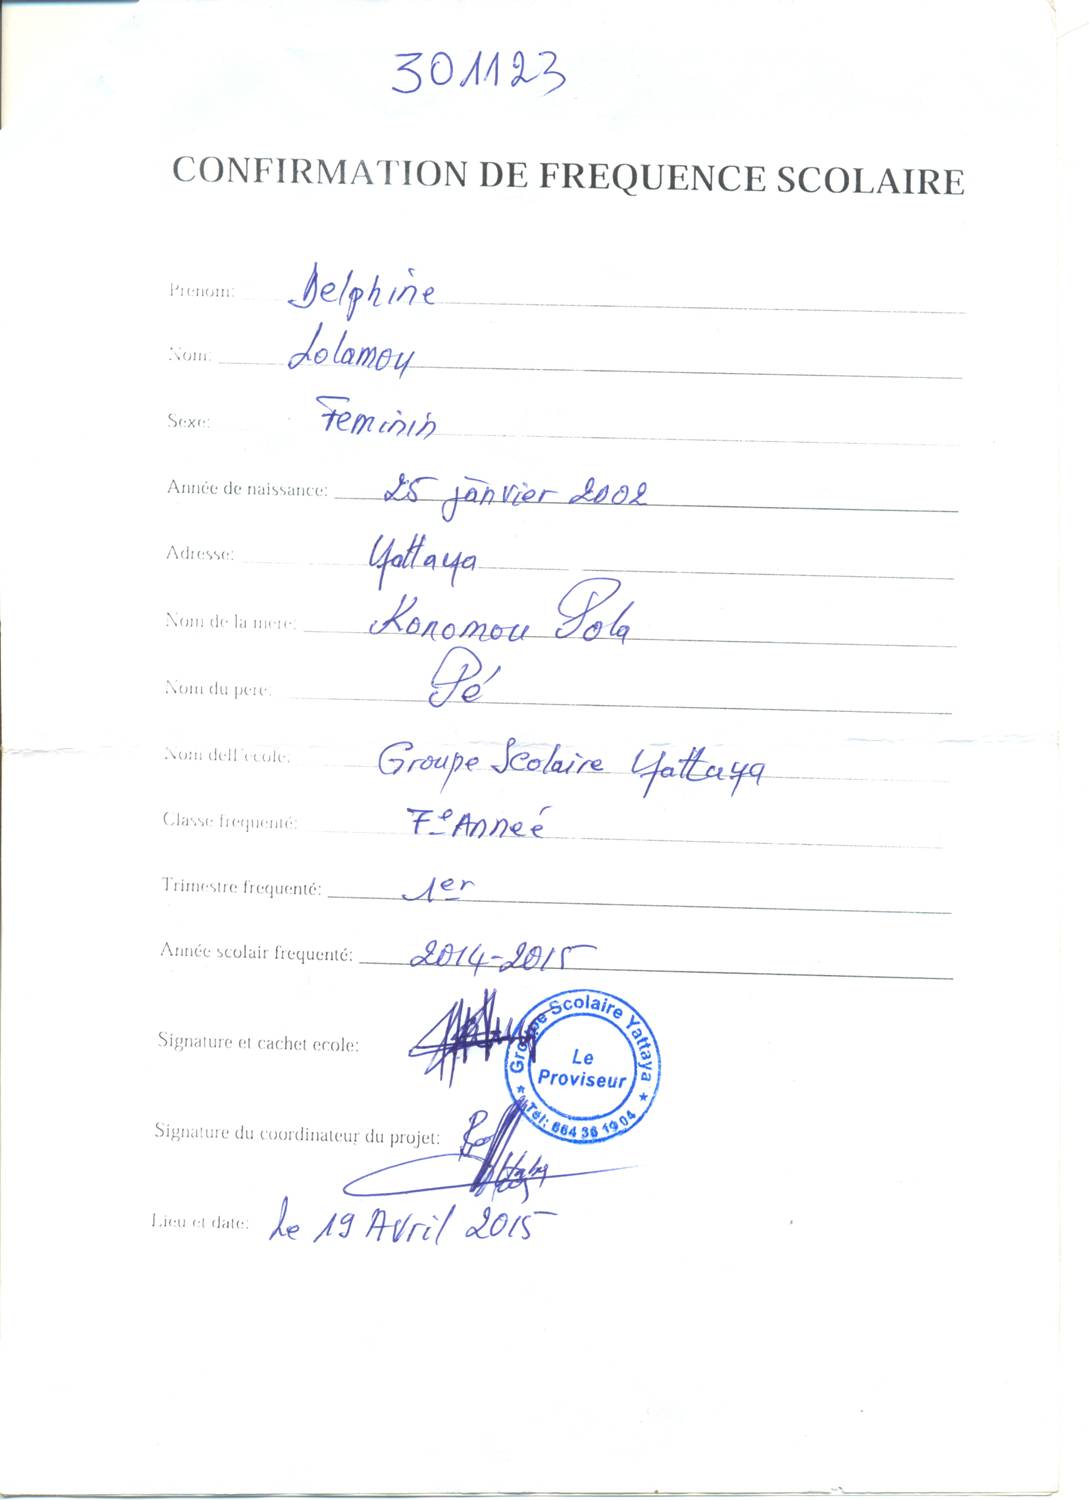 301123
CONFIRMATION DE FREQUENCE SCOLAIRE
Prenom: Delphine
Nom: Lolamou
Sexe: Feminin
Année de naissance: 25 janvier 2002
Adresse: Yattaya
Nom de la mere: Konomou Pola
Nom du pere: Pé
Nom dell'ecole: Groupe Scolaire Yattaya
Classe frequenté: 7e Anneé
Trimestre frequenté: 1er
Année scolair frequenté: 2014-2015
Signature et cachet ecole:
Groupe Scolaire Yattaya
Le
Proviseur
Tél: 664 36 19 04
Signature du coordinateur du projet:
Lieu et date: Le 19 Avril 2015